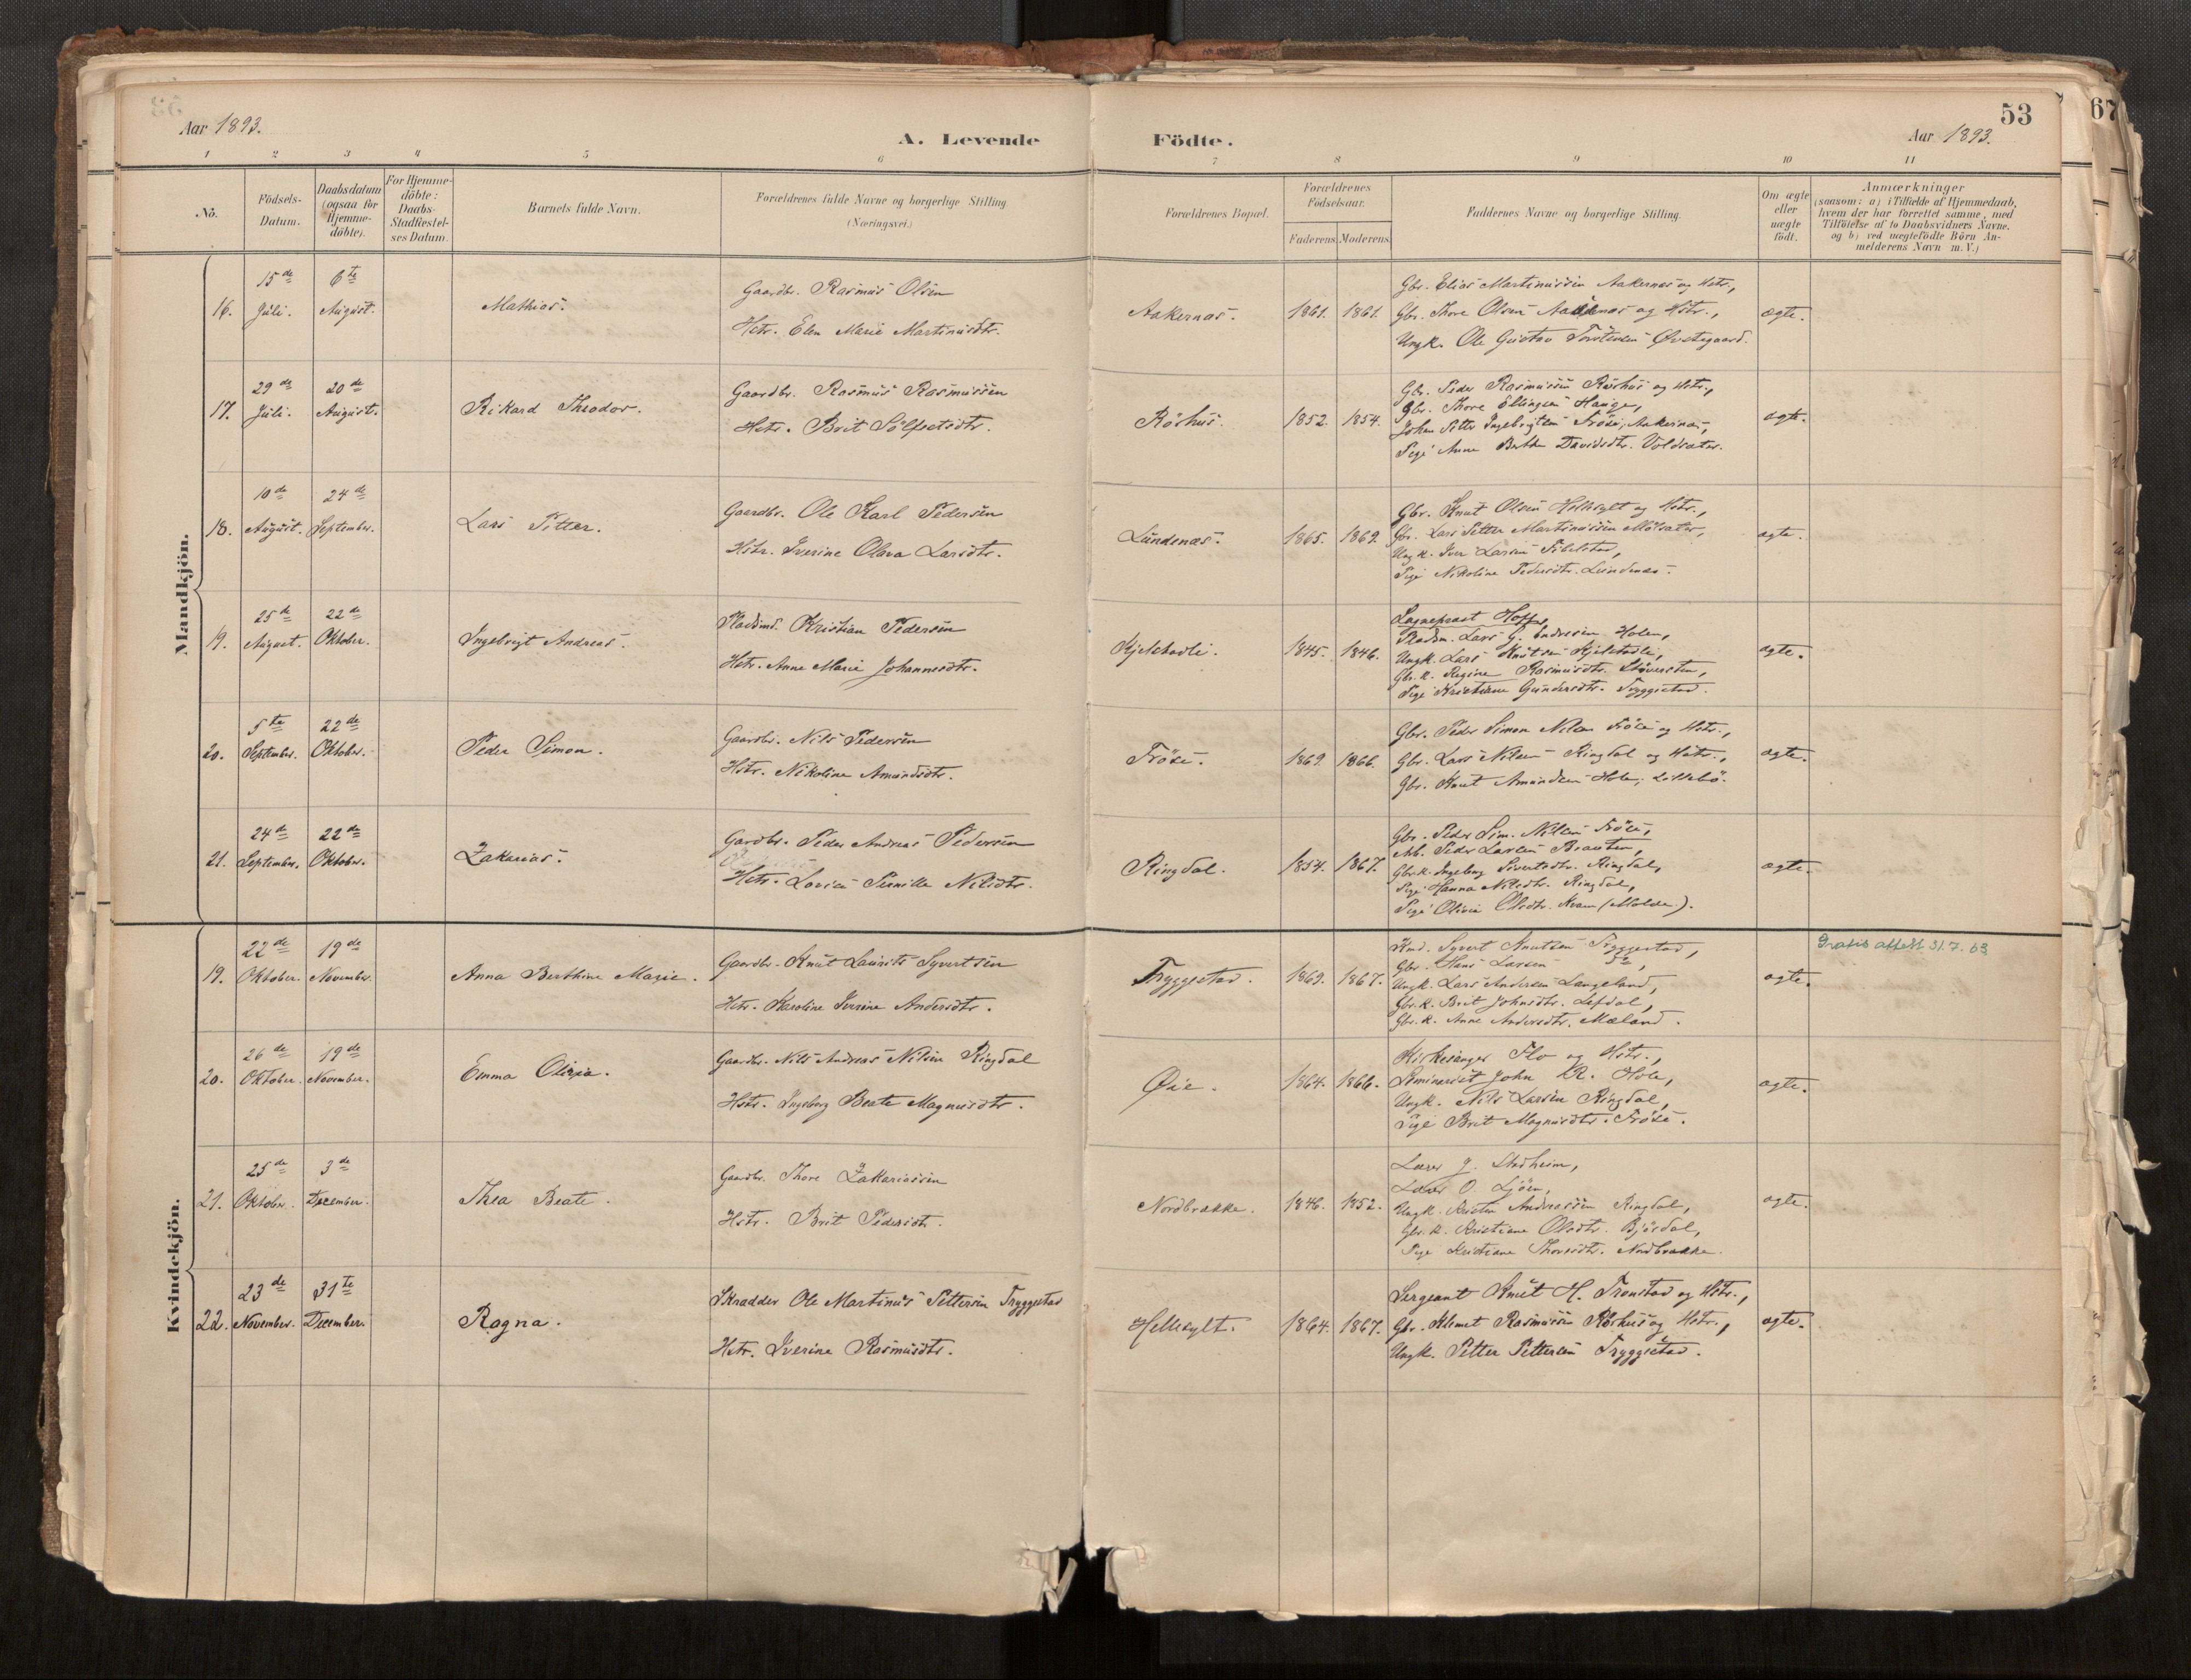 53
67
Aar 1893.
A. Levende Födte.
Aar 1893.
1 2 3 4 5 6 7 8 9 10 11
No.
Födsels-Datum.
Daabsdatum (ogsaa for Hjemme-döbte).
For Hjemme-döbte: Daabs-Stadfæstel-ses Datum.
Barnets fulde Navn.
Forældrenes fulde Navne og borgerlige Stilling (Næringsvei.)
Forældrenes Bopæl.
Forældrenes Födselsaar.
Faderens. Moderens.
Faddernes Navne og borgerlige Stilling.
Om ægte eller uægte födt.
Anmærkninger
(saasom: a) i Tilfælde af Hjemmedaab, hvem der har forrettet samme, med Tilföielse af to Daabsvidners Navne, og b) ved uægtefödte Börn An-melderens Navn m. V.)
Mandkjön.
16. 15de Juli. 6te August. Mathias.
Gaardbr. Rasmus Olsen
Hstr. Elen Marie Martinusdtr.
Aakernæs. 1861. 1861.
Gbr. Elias Martinussen Aakernæs og Hstr.,
Gbr. Thore Olsen Aakernæs og Hstr.,
Ungk. Ole Gustav Torstensen Øvstegaard.
ægte.
17. 29de Juli. 20de August. Rikard Theodor.
Gaardbr. Rasmus Rasmussen
Hstr. Brit Sölfestsdtr.
Röshus. 1852. 1854.
Gbr. Peder Rasmussen Röshus og Hstr.,
Gbr. Thore Ellingsen Hauge,
Johan Petter Ingebrigtsen Fröse, Aakernæs,
Pige Anne Berthe Davidsdtr. Voldsæter.
ægte.
18. 10de August. 24de September. Lars Petter.
Gaardbr. Ole Karl Pedersen
Hstr. Iverine Olava Larsdtr.
Lundenæs. 1865. 1869.
Gbr. Knut Olsen Hellesylt og Hstr.,
Gbr. Lars Petter Martinussen Molsæter,
Ungk. Iver Larsen Fibelstad,
Pige Nikoline Pedersdtr. Lundenæs.
ægte.
19. 25de August. 22de Oktober. Ingebrigt Andreas.
Pladsmd. Kristian Pedersen
Hstr. Anne Marie Johannesdtr.
Kjelstadli. 1845. 1846.
Sogneprest Hoff,
Pladsm. Lars G. Endresen Holen,
Ungk. Lars Knutsen Kjelstadli,
Gbr.k. Regine Rasmusdtr. Stöversten,
Pige Kristiane Gundersdtr. Tryggestad.
ægte.
20. 5te September. 22de Oktober. Peder Simon.
Gaardbr. Nils Pedersen
Hstr. Nikoline Amundsdtr.
Fröse. 1869. 1866.
Gbr. Peder Simon Nilsen Fröse og Hstr.,
Gbr. Lars Nilsen Ringdal og Hstr.,
Gbr. Knut Amundsen Hole, Littlebö.
ægte.
21. 24de September. 22de Oktober. Zakarias.
Gardbr. Peder Andreas Pedersen
Hstr. Lovise Pernille Nilsdtr.
Ringdal. 1854. 1867.
Gbr. Peder Sim. Nilsen Fröse,
Arb. Peder Larsen Brauten,
Gbr.k. Ingeborg Sivertsdtr. Ringdal,
Pige Hanna Nilsdtr. Ringdal,
Pige Olivie Olsdtr. Kvam (Molde).
ægte.
Kvindekjön.
19. 22de Oktober. 19de November. Anna Berthine Marie.
Gaardbr. Knut Laurits Syvertsen
Hstr. Karoline Iverine Andersdtr.
Tryggestad. 1869. 1867.
Kmd. Syvert Knutsen Tryggestad,
Gbr. Hans Larsen
Ungk. Lars Andersen Langeland,
Gbr.k. Brit Johnsdtr. Lefdal,
Gbr.k. Anne Andersdtr. Mæland.
ægte.
Gratis attest 31.7.63
20. 26de Oktober. 19de November. Emma Olivia.
Gaardbr. Nils Andreas Nilsen Ringdal
Hstr. Ingeborg Beate Magnusdtr.
Øie. 1864. 1866.
Kirkesanger Flo og Hstr.,
Seminarist John R. Hole,
Ungk. Nils Larsen Ringdal,
Pige Brit Magnusdtr. Fröse.
ægte.
21. 25de Oktober. 3de December. Thea Beate.
Gaardbr. Thore Zakariassen
Hstr. Brit Pedersdtr.
Nordbrække. 1846. 1852.
Lærer J. Stadheim,
Lærer O. Ljöen,
Ungk. Kristen Andreassen Ringdal,
Gbr.k. Kristiane Olsdtr. Bjørdal,
Pige Kristiane Thoresdtr. Nordbrække.
ægte.
22. 23de November. 31te December. Ragna.
Skrædder Ole Martinus Pettersen Tryggestad
Hstr. Iverine Rasmusdtr.
Hellesylt. 1864. 1867.
Sergeant Knut H. Tronstad og Hstr.,
Gbr. Klemet Rasmussen Röshus og Hstr.,
Ungk. Petter Pettersen Tryggestad.
ægte.